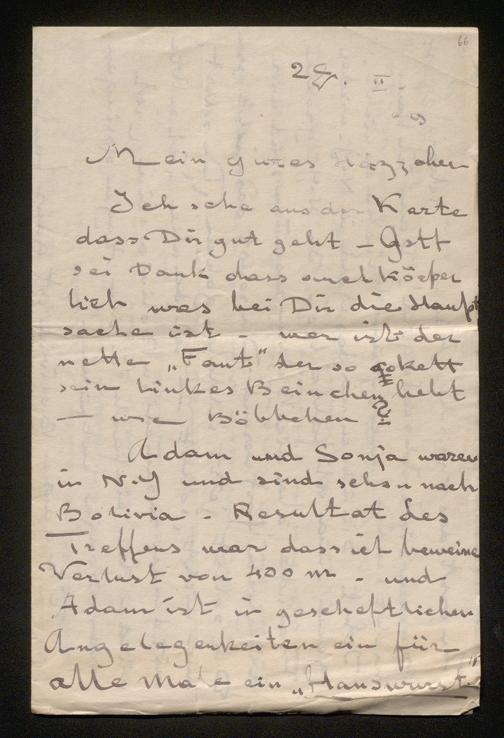 66
29. II.
Mein gutes Häzzchen
Ich sehe aus der Karte
dass Dir gut geht – Gott
sei Dank dass auch körper
lich was bei Dir die Haupt
sache ist – wer ist der
nette „Faut" der so kokett
sein linkes Beinchen hebt
– wie Böbbchen ?
Adam und Sonja waren
in N.Y und sind schon nach
Bolivia – Resultat des
Treffens war dass ich beweine
Verlust von 400 m – und
Adam ist in gescheftlichen
Angelegenheiten ein für
alle Male ein „Hanswurst"